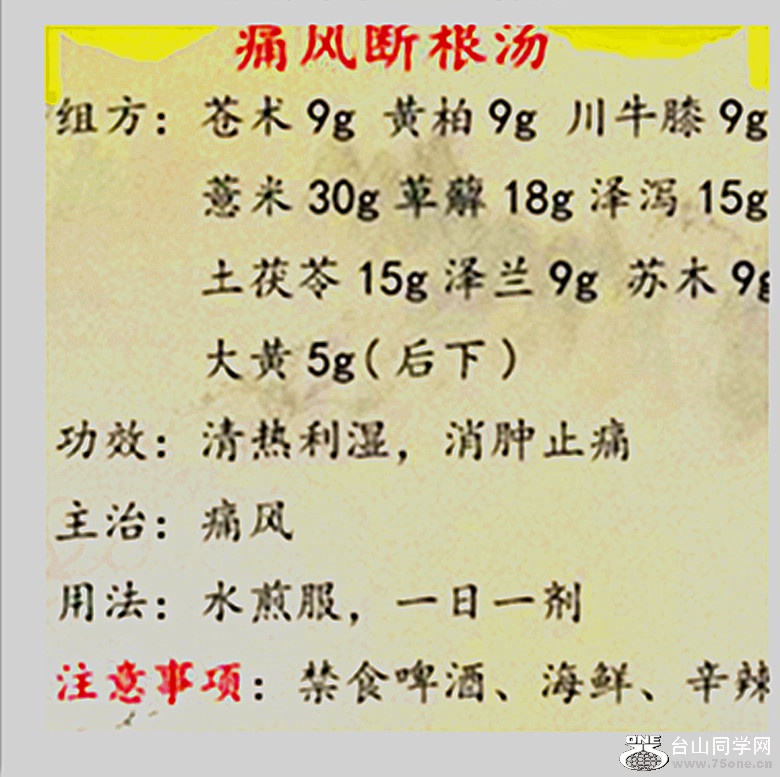 痛风断根汤
组方：苍术9g 黄柏9g 川牛膝9g
薏米30g 萆薢18g 泽泻15g
土茯苓15g 泽兰9g 苏木9g
大黄5g（后下）
功效：清热利湿，消肿止痛
主治：痛风
用法：水煎服，一日一剂
注意事项：禁食啤酒、海鲜、辛辣
ONE 台山同学网
www.75one.cn